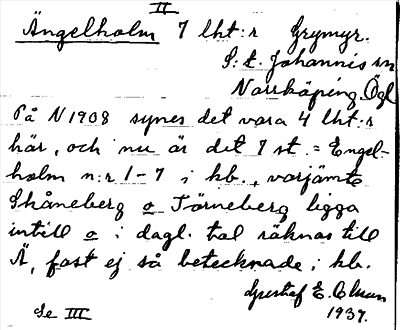 II
Ängelholm 7 lht:r Grymyr.
S:t Johannis sn
Norrköping Ögl
På N 1908 synes det vara 4 lht:r
här, och nu är det 7 st. = Engel-
holm n:r 1-7 i kb., varjämte
Skåneberg o Törneberg ligga
intill o i dagl. tal räknas till
Ä, fast ej så betecknade i kb.
Gustaf E. Olsson
Se III 1937.